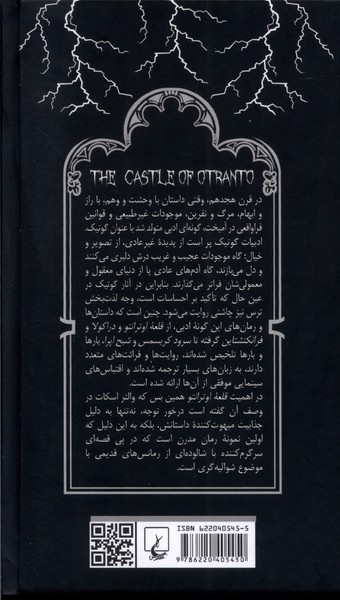 THE CASTLE OF OTRANTO
در قرن هجدهم، وقتی داستان با وحشت و وهم، با راز
و ابهام، مرگ و نفرین، موجودات غیرطبیعی و قوانین
فراواقعی در آمیخت، گونه‌ای ادبی متولد شد با عنوان گوتیک.
ادبیات گوتیک پر است از پدیدهٔ غیرعادی، از تصویر و
خیال؛ گاه موجودات عجیب و غریب درش دلبری می‌کنند
و دل می‌بازند، گاه آدم‌های عادی پا از دنیای معقول و
معمولی‌شان فراتر می‌گذارند. بنابراین در آثار گوتیک در
عین حال که تأکید بر احساسات است، وجه لذت‌بخش
ترس نیز چاشنی روایت می‌شود. چنین است که داستان‌ها
و رمان‌های این گونهٔ ادبی، از قلعهٔ اوترانتو و دراکولا و
فرانکنشتاین گرفته تا سرود کریسمس و شبح اپرا، بارها
و بارها تلخیص شده‌اند، روایت‌ها و قرائت‌های متعدد
دارند، به زبان‌های بسیار ترجمه شده‌اند و اقتباس‌های
سینمایی موفقی از آن‌ها ارائه شده است.
در اهمیت قلعهٔ اوترانتو همین بس که والتر اسکات در
وصف آن گفته است درخور توجه، نه‌تنها به دلیل
جذابیت مبهوت‌کنندهٔ داستانش، بلکه به این دلیل که
اولین نمونهٔ رمان مدرن است که در پی قصه‌ای
سرگرم‌کننده با شالوده‌ای از رمانس‌های قدیمی با
موضوع شوالیه‌گری است.
ISBN 622040545-5
9 786220 405450